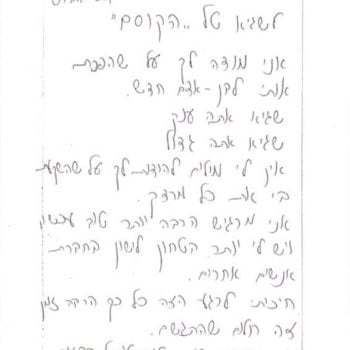 לשגיא טל ,,הקוסם"
אני מודה לך על שהפכת
אותי לבן-אדם חדש.
שגיא אתה ענק
שגיא אתה גדול
אין לי מילים להודות לך על שהשקעת
בי את כל מרצך.
אני מרגיש הרבה יותר טוב עכשיו
ויש לי יותר בטחון לישון בחברת
אנשים אחרים.
חיכיתי לרגע הזה כל כך הרבה זמן
זה חלום שהתגשם.